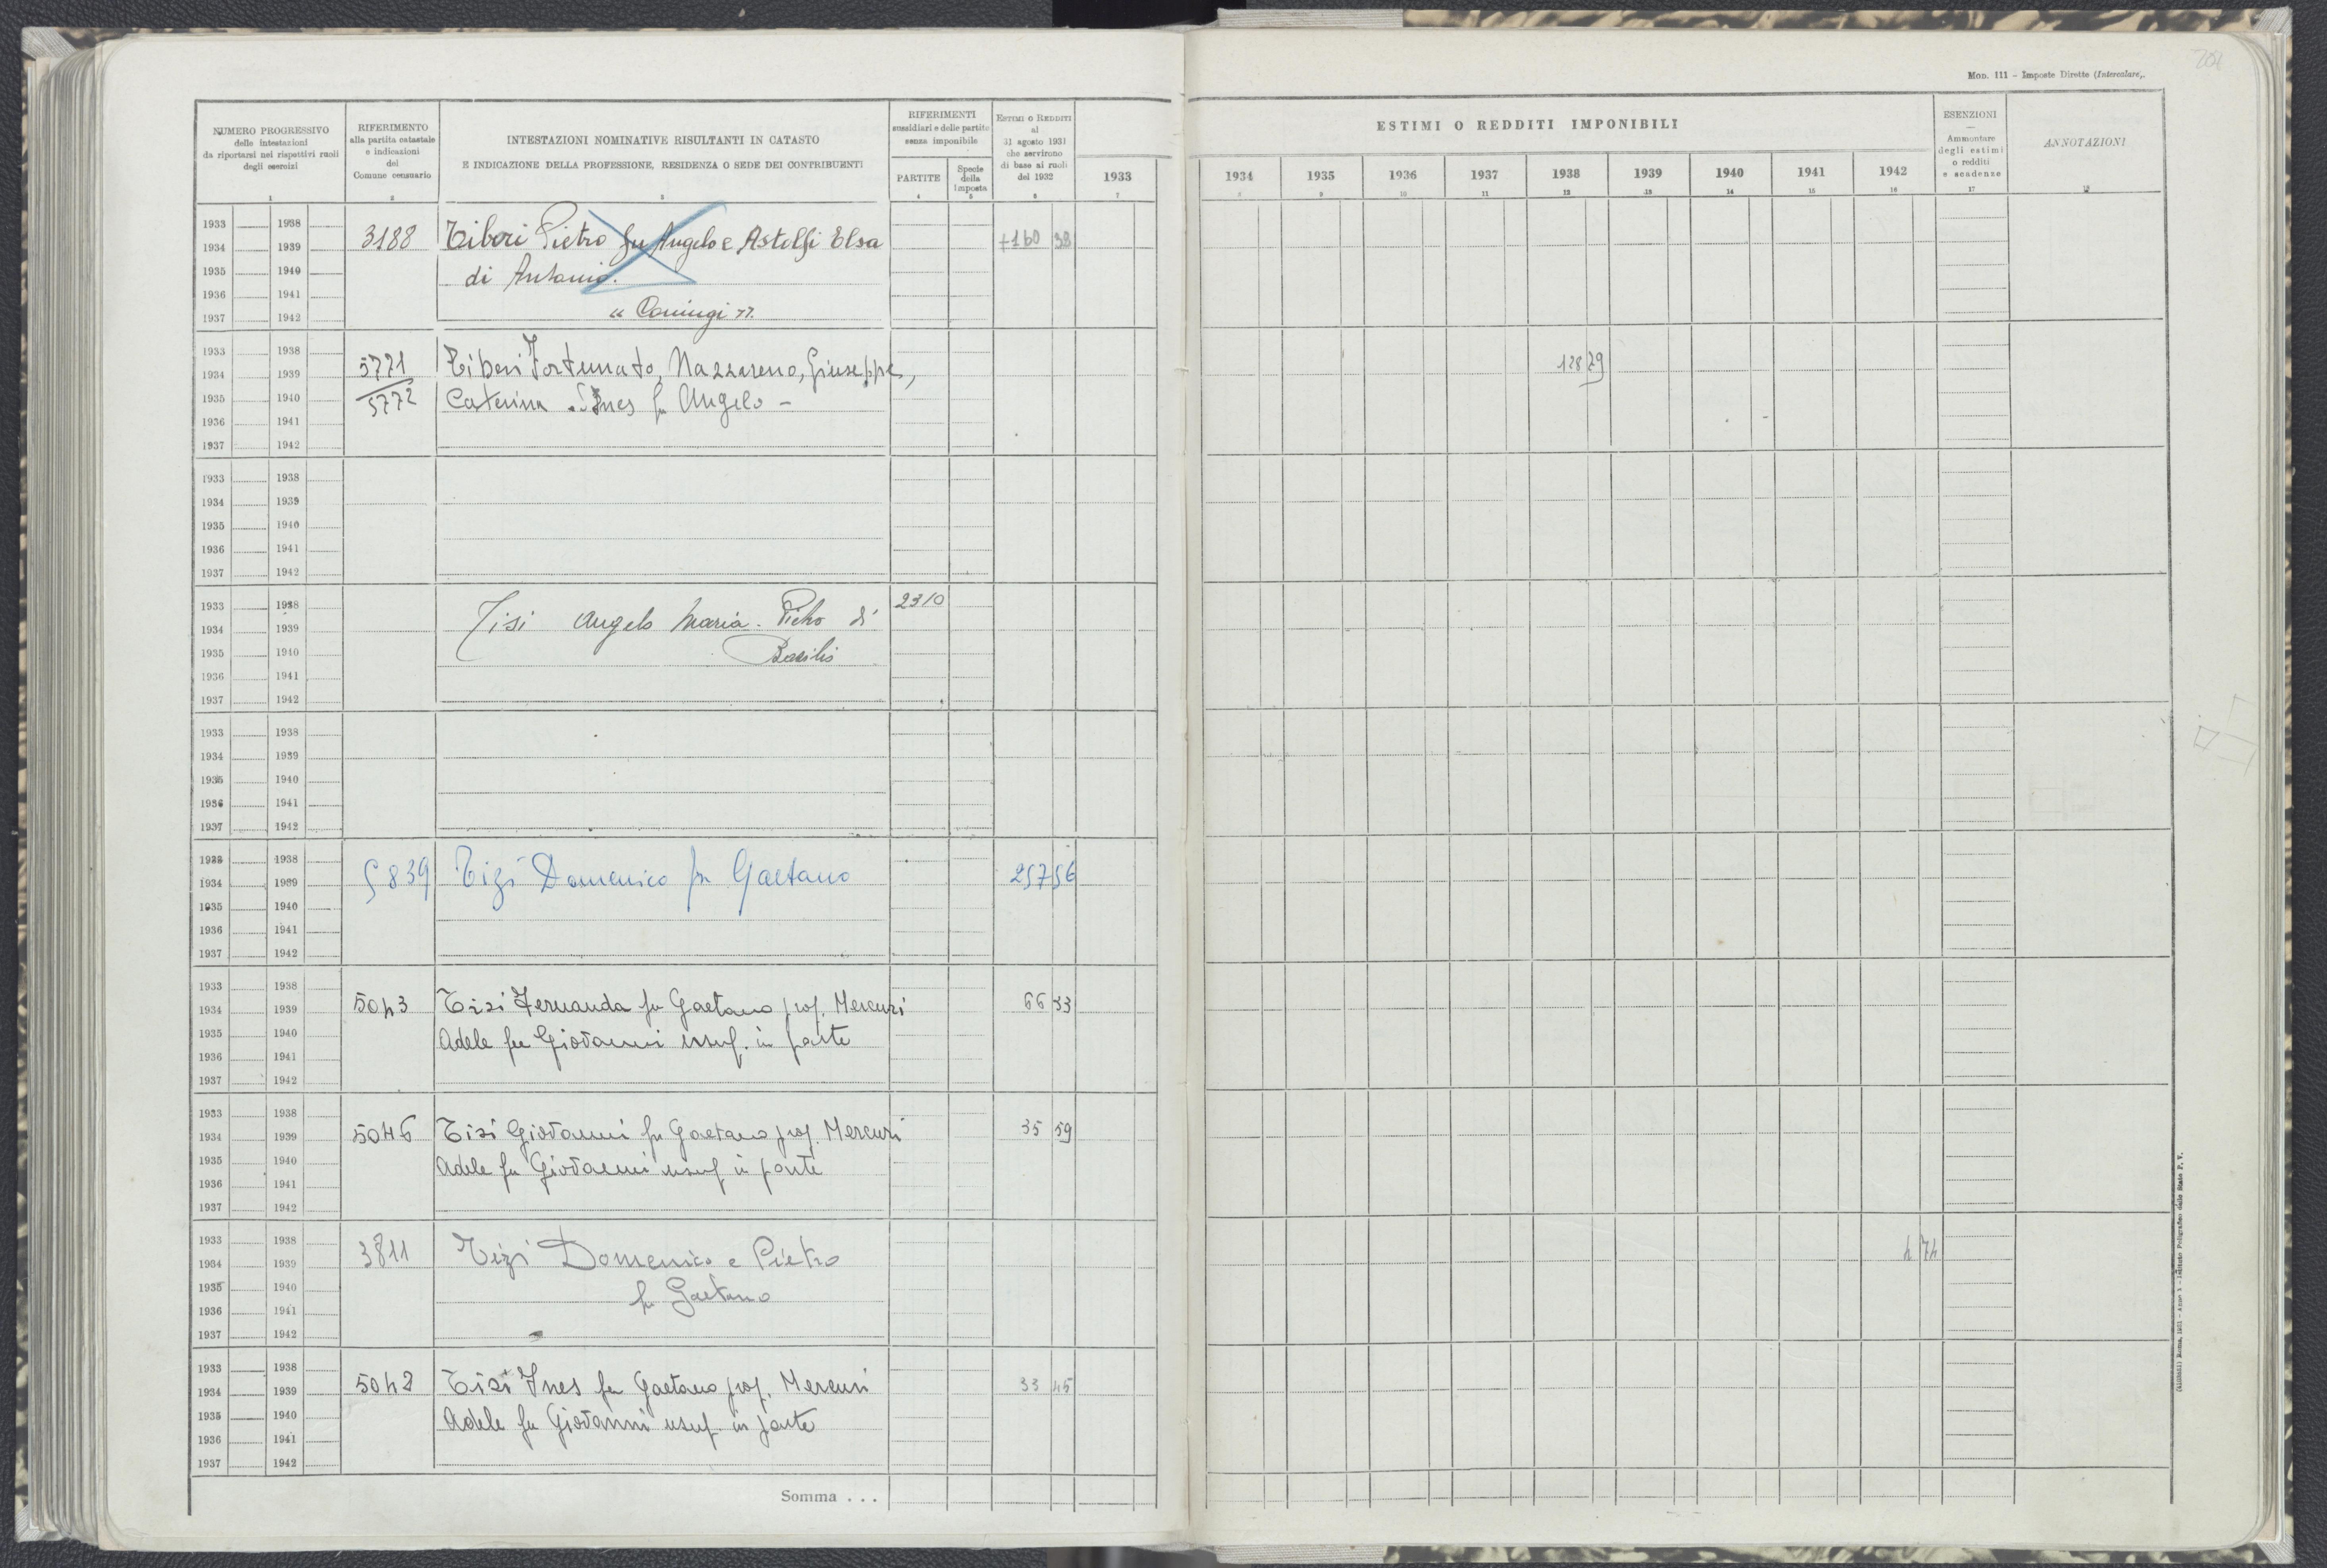 201
MOD. 111 - Imposte Dirette (Intercalare).
NUMERO PROGRESSIVO
delle intestazioni
da riportarsi nei rispettivi ruoli
degli esercizi
RIFERIMENTO
alla partita catastale
e indicazioni
del
Comune censuario
INTESTAZIONI NOMINATIVE RISULTANTI IN CATASTO
E INDICAZIONE DELLA PROFESSIONE, RESIDENZA O SEDE DEI CONTRIBUENTI
RIFERIMENTI
sussidiari e delle partite
senza imponibile
PARTITE
Specie
della
Imposta
ESTIMI O REDDITI
al
31 agosto 1931
che servirono
di base ai ruoli
del 1932
ESTIMI O REDDITI IMPONIBILI
1933 1934 1935 1936 1937 1938 1939 1940 1941 1942
ESENZIONI
Ammontare
degli estimi
o redditi
e scadenze
ANNOTAZIONI
1 2 3 4 5 6 7 8 9 10 11 12 13 14 15 16 17 18
1933 1938
1934 1939 3188 Tiberi Pietro fu Angelo e Astolfi Elsa +160 38
1935 1940 di Antonio.
1936 1941
1937 1942 "
1933 1938
1934 1939 5771 Tiberi Fortunato, Nazzareno, Giuseppe, 128 79
1935 1940 5772 Caterina Ines fu Angelo -
1936 1941
1937 1942
1933 1938
1934 1939
1935 1940
1936 1941
1937 1942
1933 1938 2310
1934 1939 Tisi Angelo Maria. Pietro di
1935 1940 Basilio
1936 1941
1937 1942
1933 1938
1934 1939
1935 1940
1936 1941
1937 1942
1933 1938
1934 1939 5839 Tizi Domenico fu Gaetano 257 56
1935 1940
1936 1941
1937 1942
1933 1938
1934 1939 5043 Tisi Fernanda fu Gaetano prop. Mercuri 66 33
1935 1940 Adele fu Giovanni usuf. in parte
1936 1941
1937 1942
1933 1938
1934 1939 5046 Tisi Giovanni fu Gaetano prop. Mercuri 35 59
1935 1940 Adele fu Giovanni usuf in parte
1936 1941
1937 1942
1933 1938
1934 1939 3811 Tizi Domenico e Pietro 4 74
1935 1940 fu Gaetano
1936 1941
1937 1942
1933 1938
1934 1939 5042 Tisi Ines fu Gaetano prop. Mercuri 33 45
1935 1940 Adele fu Giovanni usuf. in parte
1936 1941
1937 1942
Somma . . .
Roma, 1931 - Anno X - Istituto Poligrafico dello Stato P. V.